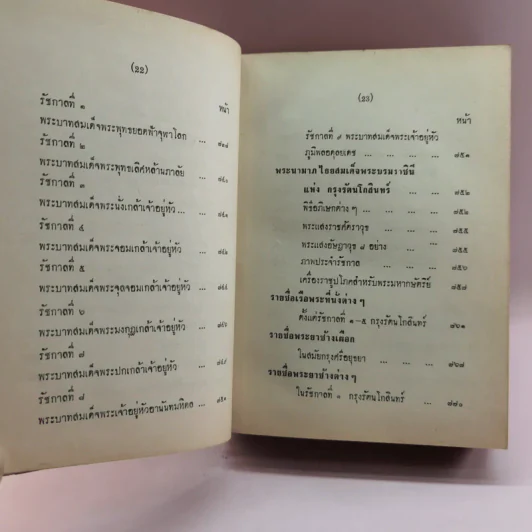 (22)
หน้า
รัชกาลที่ ๑
พระบาทสมเด็จพระพุทธยอดฟ้าจุฬาโลก ...
รัชกาลที่ ๒
พระบาทสมเด็จพระพุทธเลิศหล้านภาลัย ... ๘๔๐
รัชกาลที่ ๓
พระบาทสมเด็จพระนั่งเกล้าเจ้าอยู่หัว ... ๘๔๑
รัชกาลที่ ๔
พระบาทสมเด็จพระจอมเกล้าเจ้าอยู่หัว ... ๘๔๒
รัชกาลที่ ๕
พระบาทสมเด็จพระจุลจอมเกล้าเจ้าอยู่หัว ... ๘๔๔
รัชกาลที่ ๖
พระบาทสมเด็จพระมงกุฎเกล้าเจ้าอยู่หัว ...
รัชกาลที่ ๗
พระบาทสมเด็จพระปกเกล้าเจ้าอยู่หัว ... ๘๔๙
รัชกาลที่ ๘
พระบาทสมเด็จพระเจ้าอยู่หัวอานันทมหิดล ...
(23)
หน้า
รัชกาลที่ ๙ พระบาทสมเด็จพระเจ้าอยู่หัว
ภูมิพลอดุลยเดช ... ... ... ... ๘๕๑
พระนามาภิไธยสมเด็จพระบรมราชินี
แห่ง กรุงรัตนโกสินทร์ ... ... ๘๕๒
พิธีอภิเษกต่าง ๆ ... ... ... ๘๕๒
พระแสงราชศัตราวุธ ... ... ... ๘๕๕
พระแสงอัษฎาวุธ ๘ อย่าง ... ... ๘๕๕
ภาพประจำรัชกาล ... ... ... ๘๕๖
เครื่องราชูปโภคสำหรับพระมหากษัตริย์ ๘๕๗
รายชื่อเรือพระที่นั่งต่าง ๆ
ตั้งแต่รัชกาลที่ ๑-๕ กรุงรัตนโกสินทร์ ๘๖๑
รายชื่อพระยาช้างเผือก
ในสมัยกรุงศรีอยุธยา ... ... ๘๖๗
รายชื่อพระยาช้างต่าง ๆ
ในรัชกาลที่ ๑ กรุงรัตนโกสินทร์ ... ๘๗๐